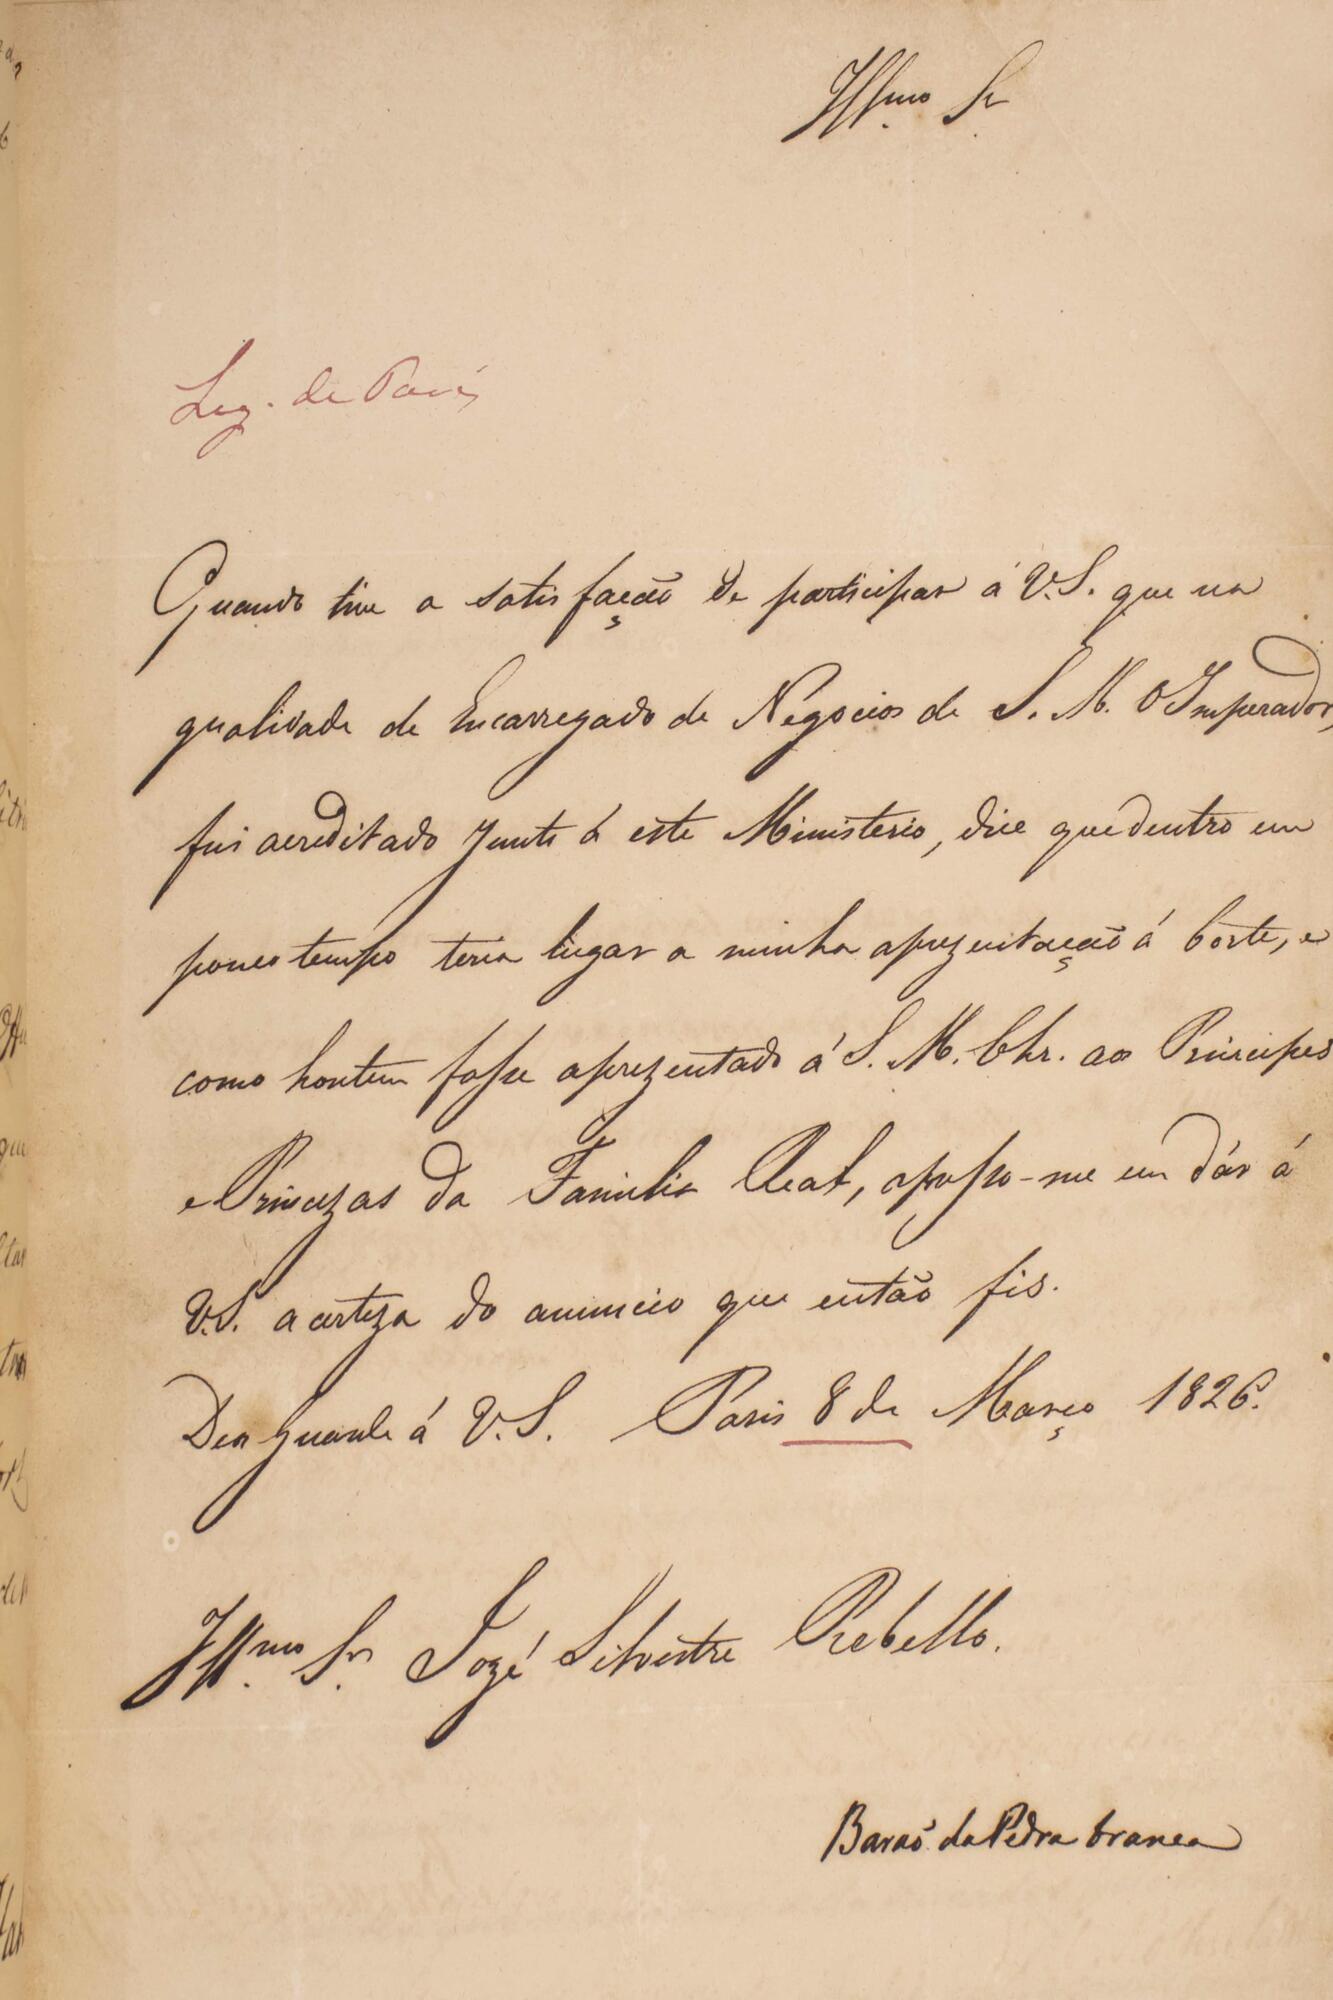 Illmo. Sr.
Leg. de París
Quando tive a satisfação de participar á V.S. que na
qualidade de Encarregado de Negocios de S. M. O Imperador,
fui acreditado junto á este Ministerio, dice que dentro em
pouco tempo teria lugar a minha aprezentação á Côrte, e
como hontem fosse aprezentado á S. M. Chr. aos Principes
e Princezas da Familia Real, apresso-me em dár á
V.S. a certeza do anuncio que então fis.
Deos Guarde á V.S. Paris 8 de Março 1826.
Illmo. Sr. Jozé Silvestre Rebello.
Barão da Pedra branca